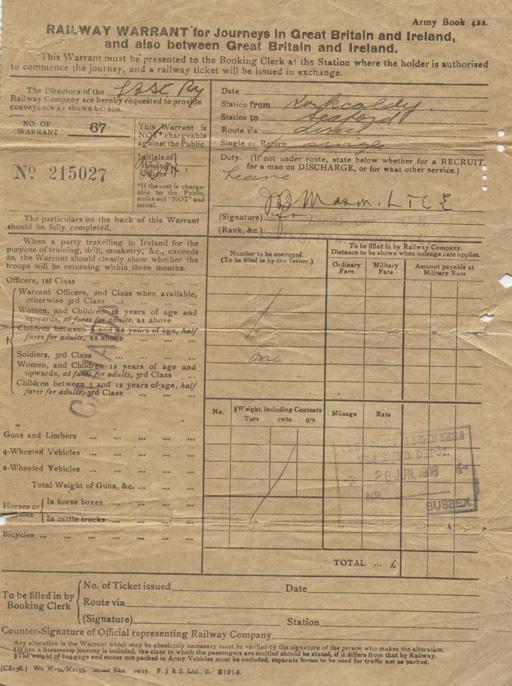 Army Book 422.
RAILWAY WARRANT for Journeys in Great Britain and Ireland,
and also between Great Britain and Ireland.
This Warrant must be presented to the Booking Clerk at the Station where the holder is authorised
to commence the journey, and a railway ticket will be issued in exchange.
The Directors of the
Railway Company are hereby requested to provide
conveyance as shown hereon.
NO. OF
WARRANT
67
This Warrant is
NOT chargeable
against the Public
Initials of
Issuing
Officer
*If the cost is charge-
able to the Public,
strike out "NOT" and
initial.
No 215027
Date
Station from Kirkcaldy
Station to Seaford
Route via direct
Single or Return single
Duty. (If not under route, state below whether for a RECRUIT,
for a man on DISCHARGE, or for what other service.)
Leave
(Signature)
(Rank, &c.)
The particulars on the back of this Warrant
should be fully completed.
When a party travelling in Ireland for the
purpose of training, drill, musketry, &c., exceeds
20, the Warrant should clearly show whether the
troops will be returning within three months.
Number to be conveyed.
(To be filled in by the Issuer.)
To be filled in by Railway Company.
Distance to be shown when mileage rate applies.
Ordinary
Fare
Military
Fare
Amount payable at
Military Rate
Officers, 1st Class
Warrant Officers, 2nd Class when available,
otherwise 3rd Class
Women, and Children 12 years of age and
upwards, at fares for adults, as above
Children between 3 and 12 years of age, half
fares for adults, as above
Soldiers, 3rd Class
one
Women, and Children 12 years of age and
upwards, at fares for adults, 3rd Class
Children between 3 and 12 years of age, half
fares for adults, 3rd Class
No.
§Weight, including Contents
Tons
cwts.
qrs.
Mileage
Rate
Guns and Limbers
4-Wheeled Vehicles
2-Wheeled Vehicles
Total Weight of Guns, &c.
Horses or
Mules
In horse boxes
In cattle trucks
Bicycles
26 JUN. 1918
SUSSEX
TOTAL ... £
To be filled in by
Booking Clerk
No. of Ticket issued
Date
Route via
(Signature)
Station
Counter-Signature of Official representing Railway Company
Any alteration in the Warrant which may be absolutely necessary must be verified by the signature of the person who makes the alteration.
If a Steamship journey is included, the class to which the passengers are entitled should be stated, if it differs from that by Railway.
§The weight of baggage and stores not packed in Army Vehicles must be excluded, separate forms to be used for traffic not so packed.